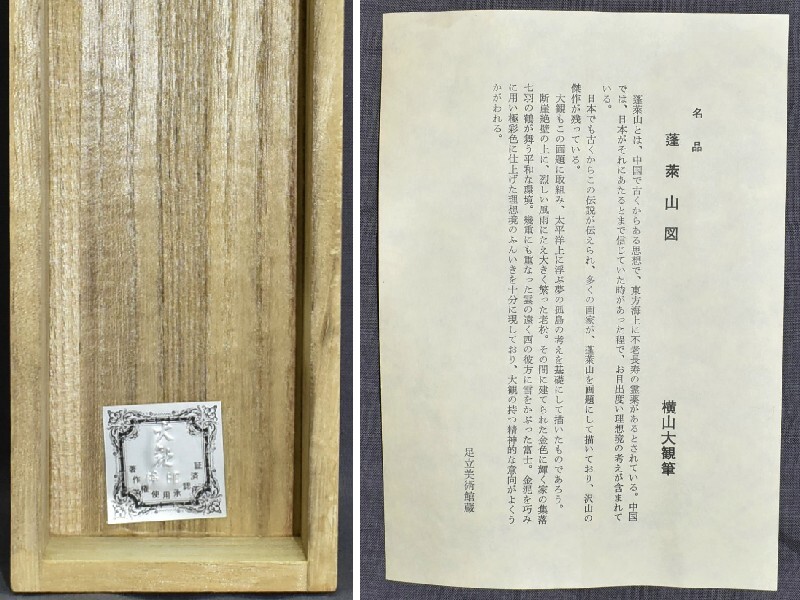 名品
蓬萊山図
横山大観筆
蓬萊山とは、中国で古くからある思想で、東方海上に不老長寿の霊薬があるとされている。中国
では、日本がそれにあたるとまで信じていた時があった程で、お目出度い理想境の考えが含まれて
いる。
日本でも古くからこの伝説が伝えられ、多くの画家が、蓬萊山を画題にして描いており、沢山の
傑作が残っている。
大観もこの画題に取組み、太平洋上に浮ぶ夢の孤島の考えを基礎にして描いたものであろう。
断崖絶壁の上に、烈しい風雨にたえ大きく繁った老松。その間に建てられた金色に輝く家の集落
七羽の鶴が舞う平和な環境。幾重にも重なった雲の遠く西の彼方に雪をかぶった富士。金泥を巧み
に用い極彩色に仕上げた理想境のふんいきを十分に現しており、大観の持つ精神的な意向がよくう
かがわれる。
足立美術館蔵